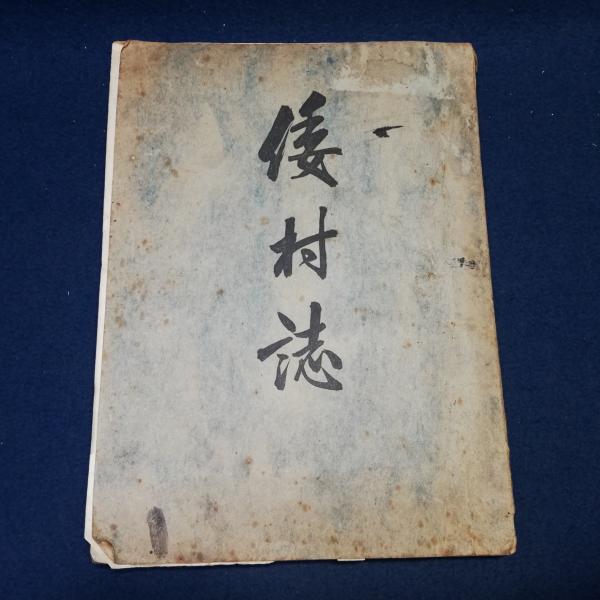 倭村誌